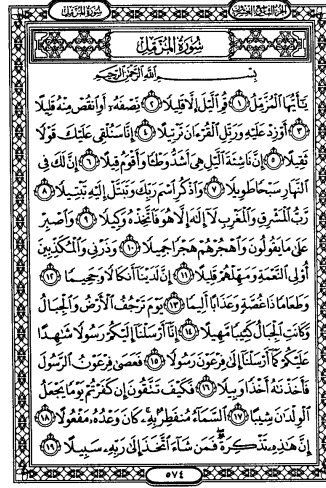 سُورَةُ المُزَّمِّل
الجزء التاسع والعشرون
سُورَةُ المُزَّمِّل
بِسْمِ اللَّهِ الرَّحْمَٰنِ الرَّحِيمِ
يَٰٓأَيُّهَا ٱلْمُزَّمِّلُ ١ قُمِ ٱلَّيْلَ إِلَّا قَلِيلًا ٢ نِّصْفَهُۥٓ أَوِ ٱنقُصْ مِنْهُ قَلِيلًا
٣ أَوْ زِدْ عَلَيْهِ وَرَتِّلِ ٱلْقُرْءَانَ تَرْتِيلًا ٤ إِنَّا سَنُلْقِى عَلَيْكَ قَوْلًا
ثَقِيلًا ٥ إِنَّ نَاشِئَةَ ٱلَّيْلِ هِىَ أَشَدُّ وَطْـًٔا وَأَقْوَمُ قِيلًا ٦ إِنَّ لَكَ فِى
ٱلنَّهَارِ سَبْحًا طَوِيلًا ٧ وَٱذْكُرِ ٱسْمَ رَبِّكَ وَتَبَتَّلْ إِلَيْهِ تَبْتِيلًا ٨
رَّبُّ ٱلْمَشْرِقِ وَٱلْمَغْرِبِ لَآ إِلَٰهَ إِلَّا هُوَ فَٱتَّخِذْهُ وَكِيلًا ٩ وَٱصْبِرْ
عَلَىٰ مَا يَقُولُونَ وَٱهْجُرْهُمْ هَجْرًا جَمِيلًا ١٠ وَذَرْنِى وَٱلْمُكَذِّبِينَ
أُو۟لِى ٱلنَّعْمَةِ وَمَهِّلْهُمْ قَلِيلًا ١١ إِنَّ لَدَيْنَآ أَنكَالًا وَجَحِيمًا ١٢
وَطَعَامًا ذَا غُصَّةٍ وَعَذَابًا أَلِيمًا ١٣ يَوْمَ تَرْجُفُ ٱلْأَرْضُ وَٱلْجِبَالُ
وَكَانَتِ ٱلْجِبَالُ كَثِيبًا مَّهِيلًا ١٤ إِنَّآ أَرْسَلْنَآ إِلَيْكُمْ رَسُولًا شَٰهِدًا
عَلَيْكُمْ كَمَآ أَرْسَلْنَآ إِلَىٰ فِرْعَوْنَ رَسُولًا ١٥ فَعَصَىٰ فِرْعَوْنُ ٱلرَّسُولَ
فَأَخَذْنَٰهُ أَخْذًا وَبِيلًا ١٦ فَكَيْفَ تَتَّقُونَ إِن كَفَرْتُمْ يَوْمًا يَجْعَلُ
ٱلْوِلْدَٰنَ شِيبًا ١٧ ٱلسَّمَآءُ مُنفَطِرٌۢ بِهِۦ كَانَ وَعْدُهُۥ مَفْعُولًا ١٨
إِنَّ هَٰذِهِۦ تَذْكِرَةٌ فَمَن شَآءَ ٱتَّخَذَ إِلَىٰ رَبِّهِۦ سَبِيلًا ١٩
٥٧٤